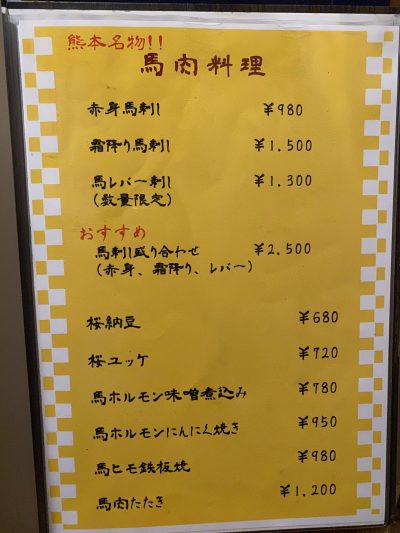 熊本名物!!
馬肉料理
赤身馬刺し ¥980
霜降り馬刺し ¥1.500
馬レバー刺し ¥1.300
(数量限定)
おすすめ
馬刺し盛り合わせ ¥2.500
(赤身、霜降り、レバー)
桜納豆 ¥680
桜ユッケ ¥720
馬ホルモン味噌煮込み ¥780
馬ホルモンにんにく焼き ¥950
馬ヒモ鉄板焼 ¥980
馬肉たたき ¥1.200